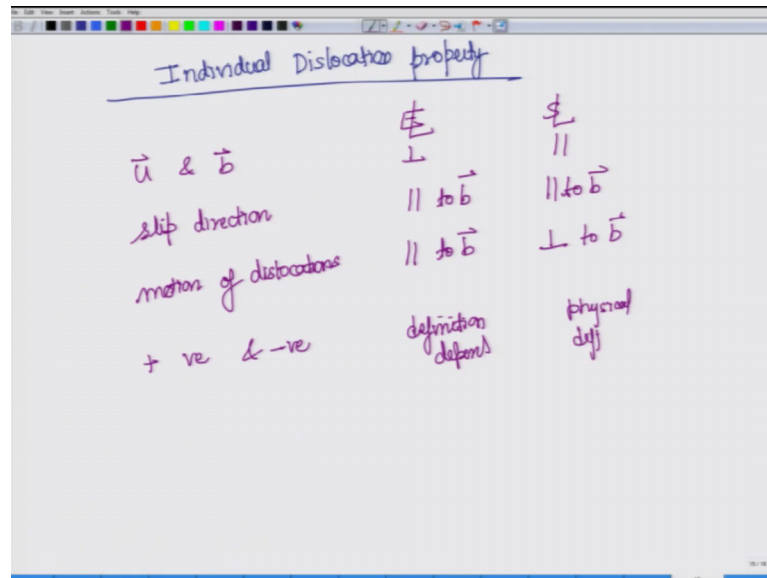 File Edit View Insert Actions Tools Help
Individual Dislocation property
⊥
u⃗ & b⃗ ⊥ ||
slip direction || to b⃗ || to b⃗
motion of dislocations || to b⃗ ⊥ to b⃗
+ ve & -ve definition depens physical defj